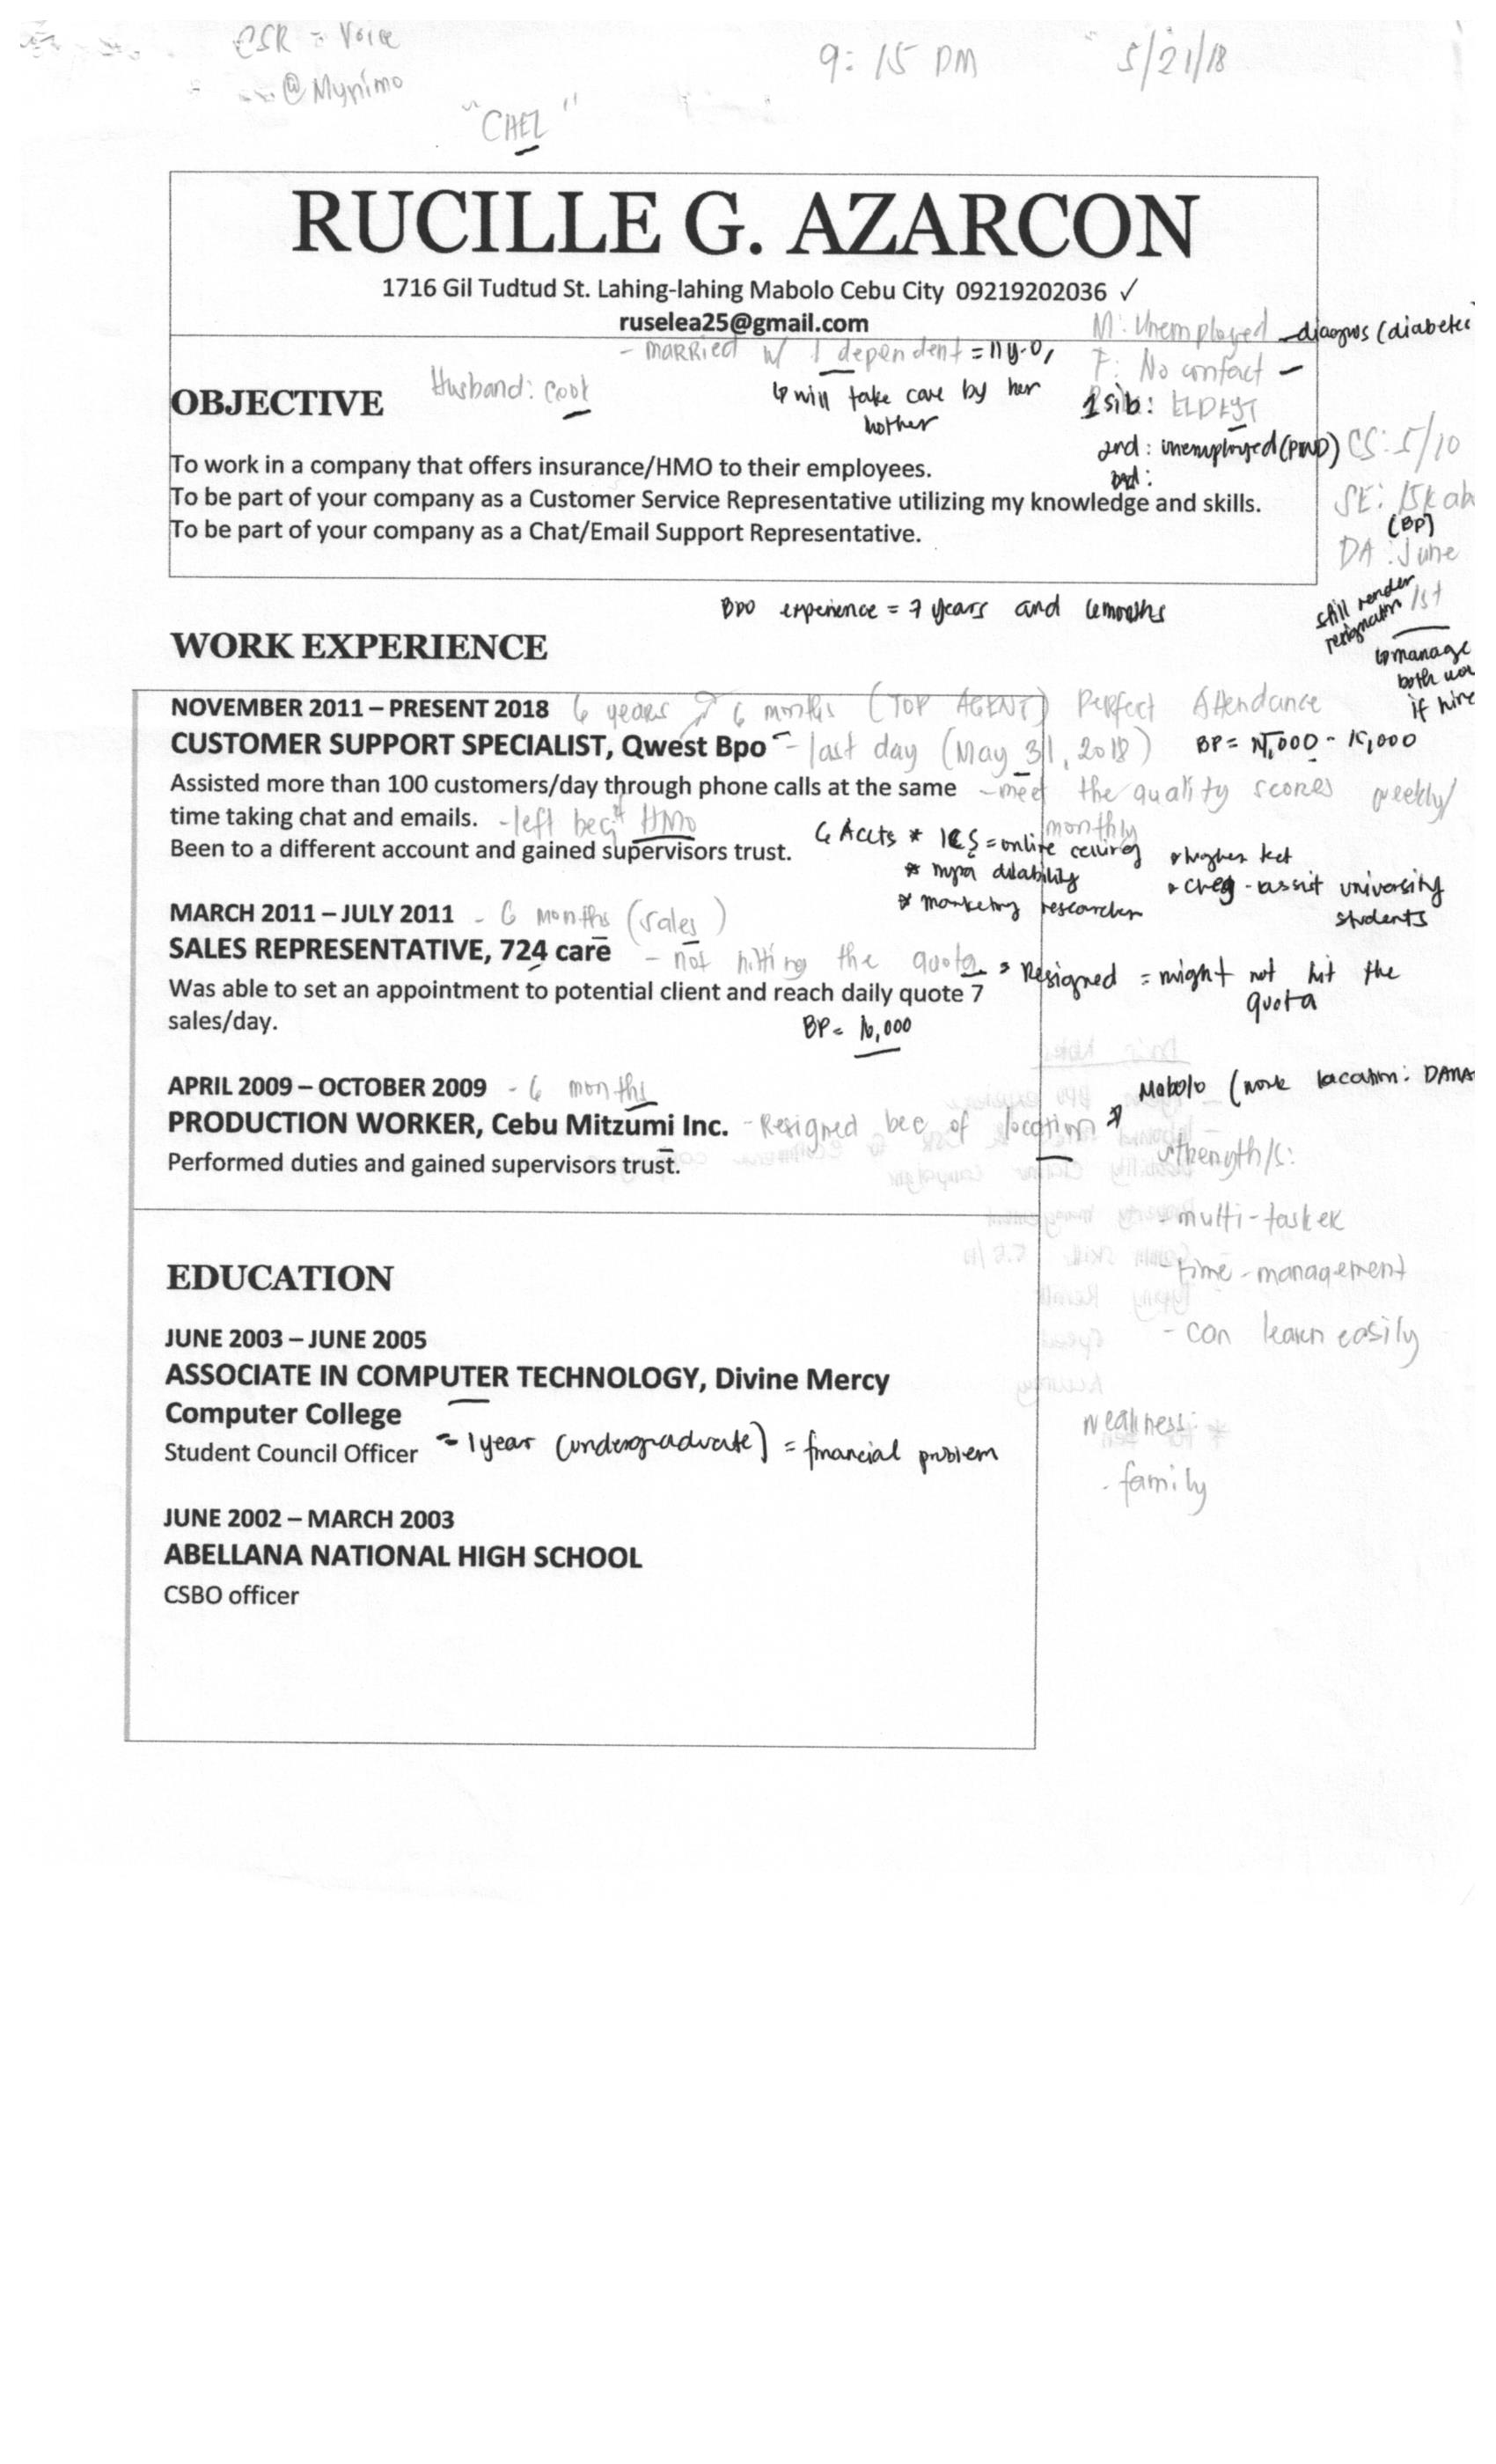 CSR = Voice
@Mynimo
9:15 PM
5/21/18
"CHEL"
RUCILLE G. AZARCON
1716 Gil Tudtud St. Lahing-lahing Mabolo Cebu City 09219202036 ✓
ruselea25@gmail.com
- MARRIED w/ 1 dependent = 11 y.o,
↳ will take care by her
mother
Husband: cook
M: Unemployed - diagnos (diabetec
F: No contact -
1 sib: ELDEST
2nd: unemployed (PWD)
CS: 5/10
SE: 15k ab
(BP)
DA: June
1st
still render
resignation
↳ manage
both wo
if hire
OBJECTIVE
To work in a company that offers insurance/HMO to their employees.
To be part of your company as a Customer Service Representative utilizing my knowledge and skills.
To be part of your company as a Chat/Email Support Representative.
BPO experience = 7 years and 6 months
WORK EXPERIENCE
NOVEMBER 2011 – PRESENT 2018 6 years & 6 months (TOP AGENT) Perfect Attendance
CUSTOMER SUPPORT SPECIALIST, Qwest Bpo - last day (May 31, 2018) BP = 15,000
Assisted more than 100 customers/day through phone calls at the same - meet the quality scores weekly/
monthly
time taking chat and emails. - left bec of HMO
Been to a different account and gained supervisors trust.
6 Accts * = online
* disability
* marketing researcher
* creg - assist university
students
MARCH 2011 – JULY 2011 - 6 months (sales)
SALES REPRESENTATIVE, 724 care - not hitting the quota = Resigned = might not hit the
quota
Was able to set an appointment to potential client and reach daily quote 7
sales/day.
BP = 16,000
APRIL 2009 – OCTOBER 2009 - 6 months
PRODUCTION WORKER, Cebu Mitzumi Inc. - Resigned bec of location
Mabolo (work location: DANA
Performed duties and gained supervisors trust.
strength/s:
- multi-tasker
- time-management
- can learn easily
weakness:
- family
EDUCATION
JUNE 2003 – JUNE 2005
ASSOCIATE IN COMPUTER TECHNOLOGY, Divine Mercy
Computer College
Student Council Officer = 1 year (undergraduate) = financial problem
JUNE 2002 – MARCH 2003
ABELLANA NATIONAL HIGH SCHOOL
CSBO officer